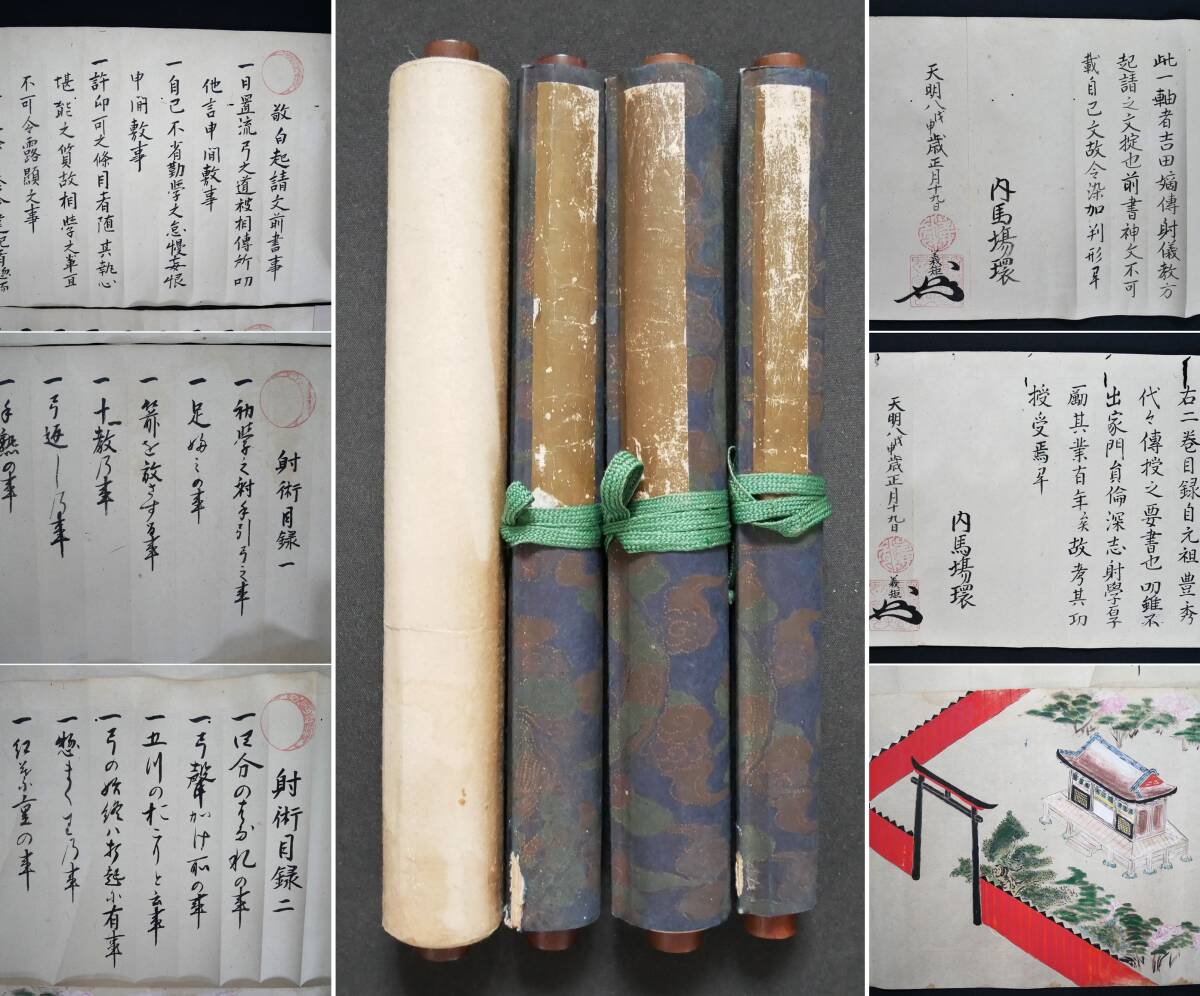 敬白起請文前書事
一日置流弓之道被相傳所叨
他言申間敷事
一自己不省勤学之怠慢妄恨
申間敷事
一許印可之條目者随其執心
堪能之質故相学之事且
不可令露顕之事
射術目録一
一初学之射手引弓之事
一足ぶみの事
一箭を放さす事
一十教乃事
一弓返し乃事
一手熟の事
射術目録二
一四分のはなれの事
一弓聲かけ所の事
一五川のおこりと云事
一弓の始終八打起に有事
一惣まくり乃事
一紅葉重の事
此一軸者吉田嫡傳射儀教方
起請之文掟也前書神文不可
載自己文故令染加判形畢
天明八戊申歳正月十九日
内馬場環
義矩
右二巻目録自元祖豊秀
代々傳授之要書也叨雖不
出家門貟倫深志射學旦
勵其業百年矣故考其功
授受焉畢
天明八戊申歳正月十九日
内馬場環
義矩